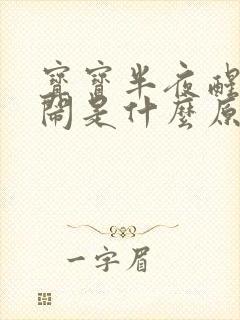 寶寶半夜醒
鬧是什麼原
一字眉